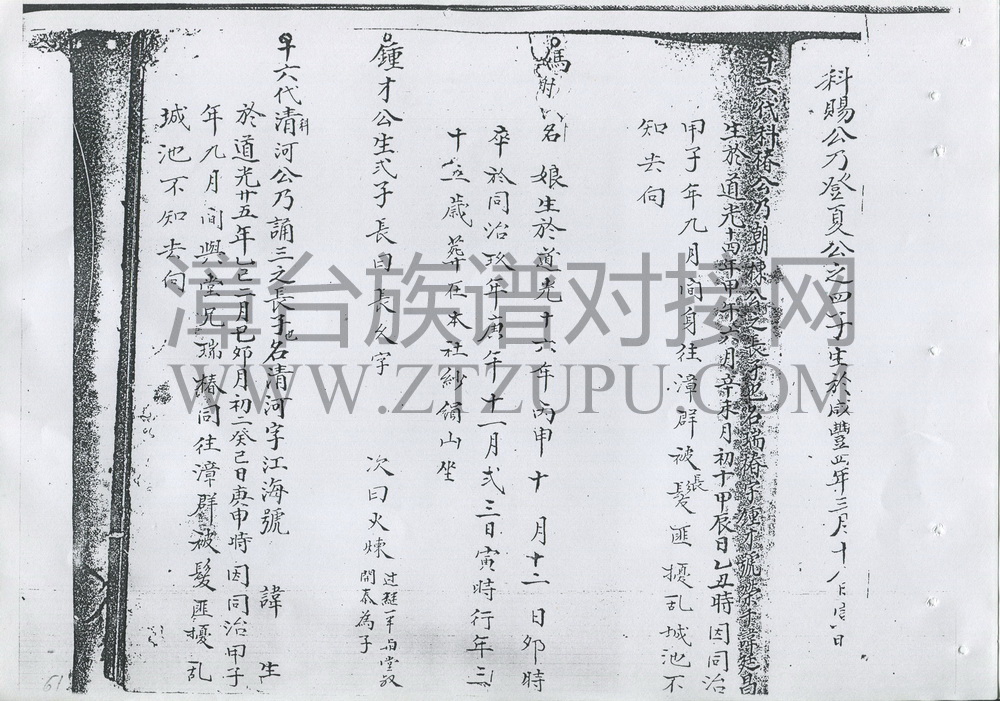 科賜公乃登夏公之四子生於咸豐四年三月十八日
十六代科椿公乃潮棟公之長子 名瑞椿字鍾才號
生於道光十四年甲午六月辛未月初十甲辰日乙丑時因同治
甲子年九月间身往漳群被張髮匪擾乱城池不
知去向
馮 娘生於道光十六年丙申十月十二日夘時
卒於同治玖年庚午十一月弍三日寅時行年三
十五歲葬在本社紗嶺山坐
鍾才公生弍子長曰長久字 次曰火煉 開泰為子
十六代清科河公乃誦三之長子名清河字江海號 諱 生
於道光廿五年乙巳二月己夘月初二癸己日庚申時因同治甲子
年九月间與堂兄瑞椿同往漳群被髮匪擾乱
城池不知去向
漳台族谱对接网
WWW.ZTZUPU.COM
61